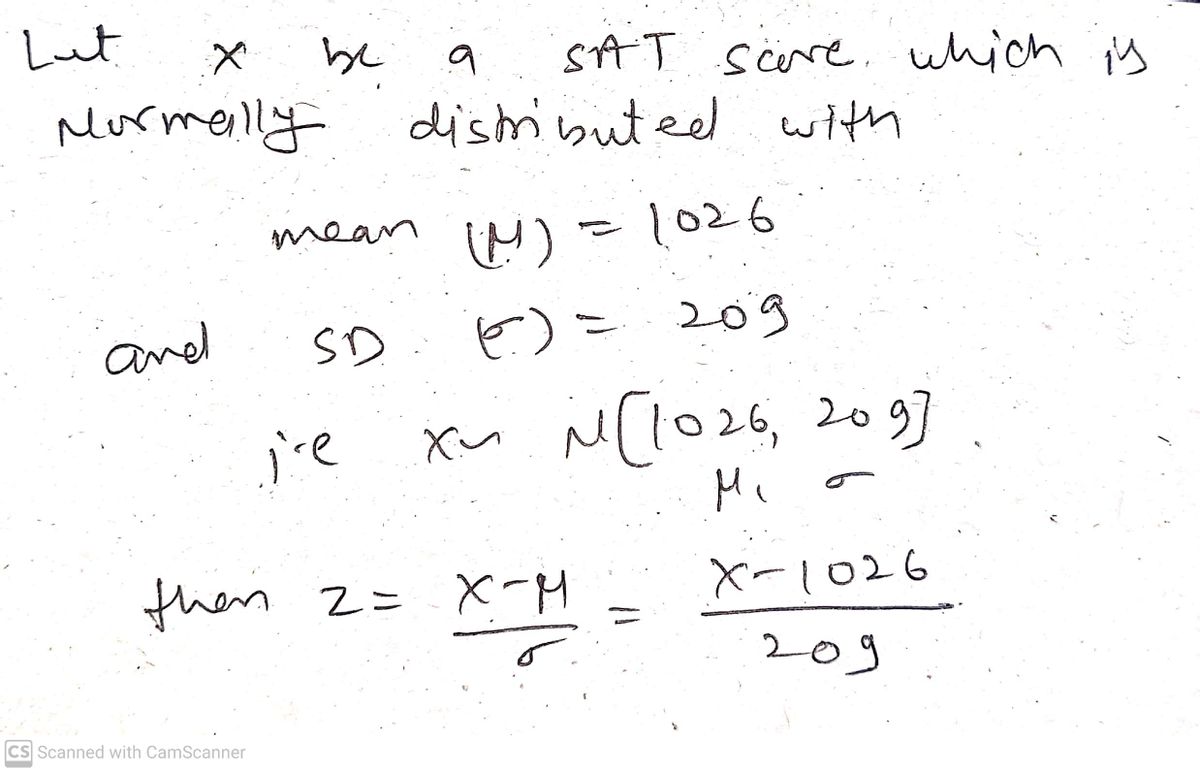 Let x be a SAT score which is
Normally distributed with
mean (μ) = 1026
and SD (σ) = 209
i.e X~ N[1026, 209]
μ, σ
then z = X-μ / σ = X-1026 / 209
CS Scanned with CamScanner